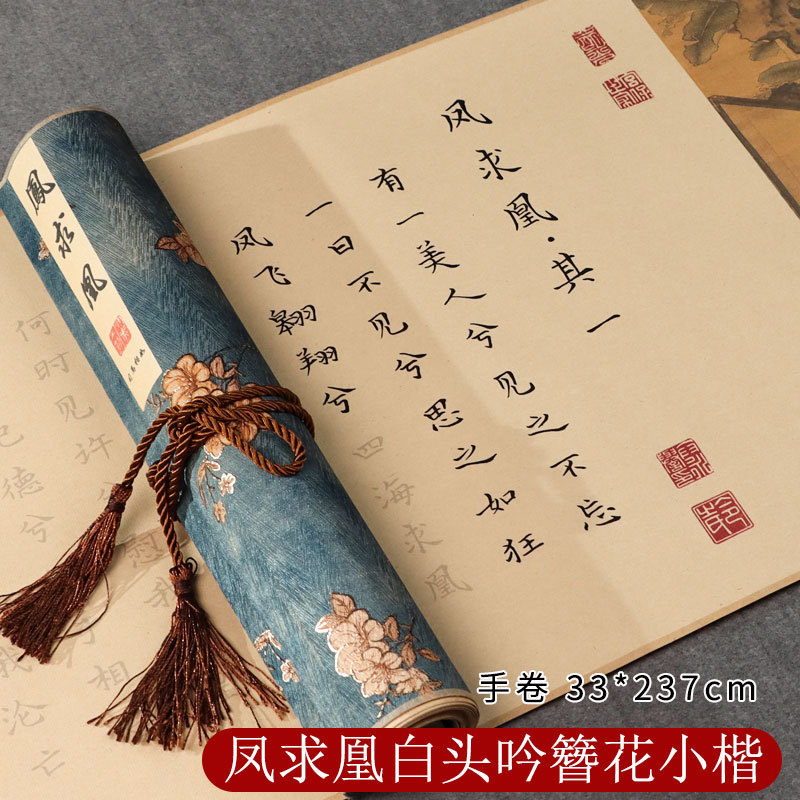 凤求凰·其一
有一美人兮见之不忘
一日不见兮思之如狂
凤飞翱翔兮
四海求凰
鳳求凰
何时见许
己德兮
慰我
相
我沦亡
手卷 33*237cm
凤求凰白头吟簪花小楷